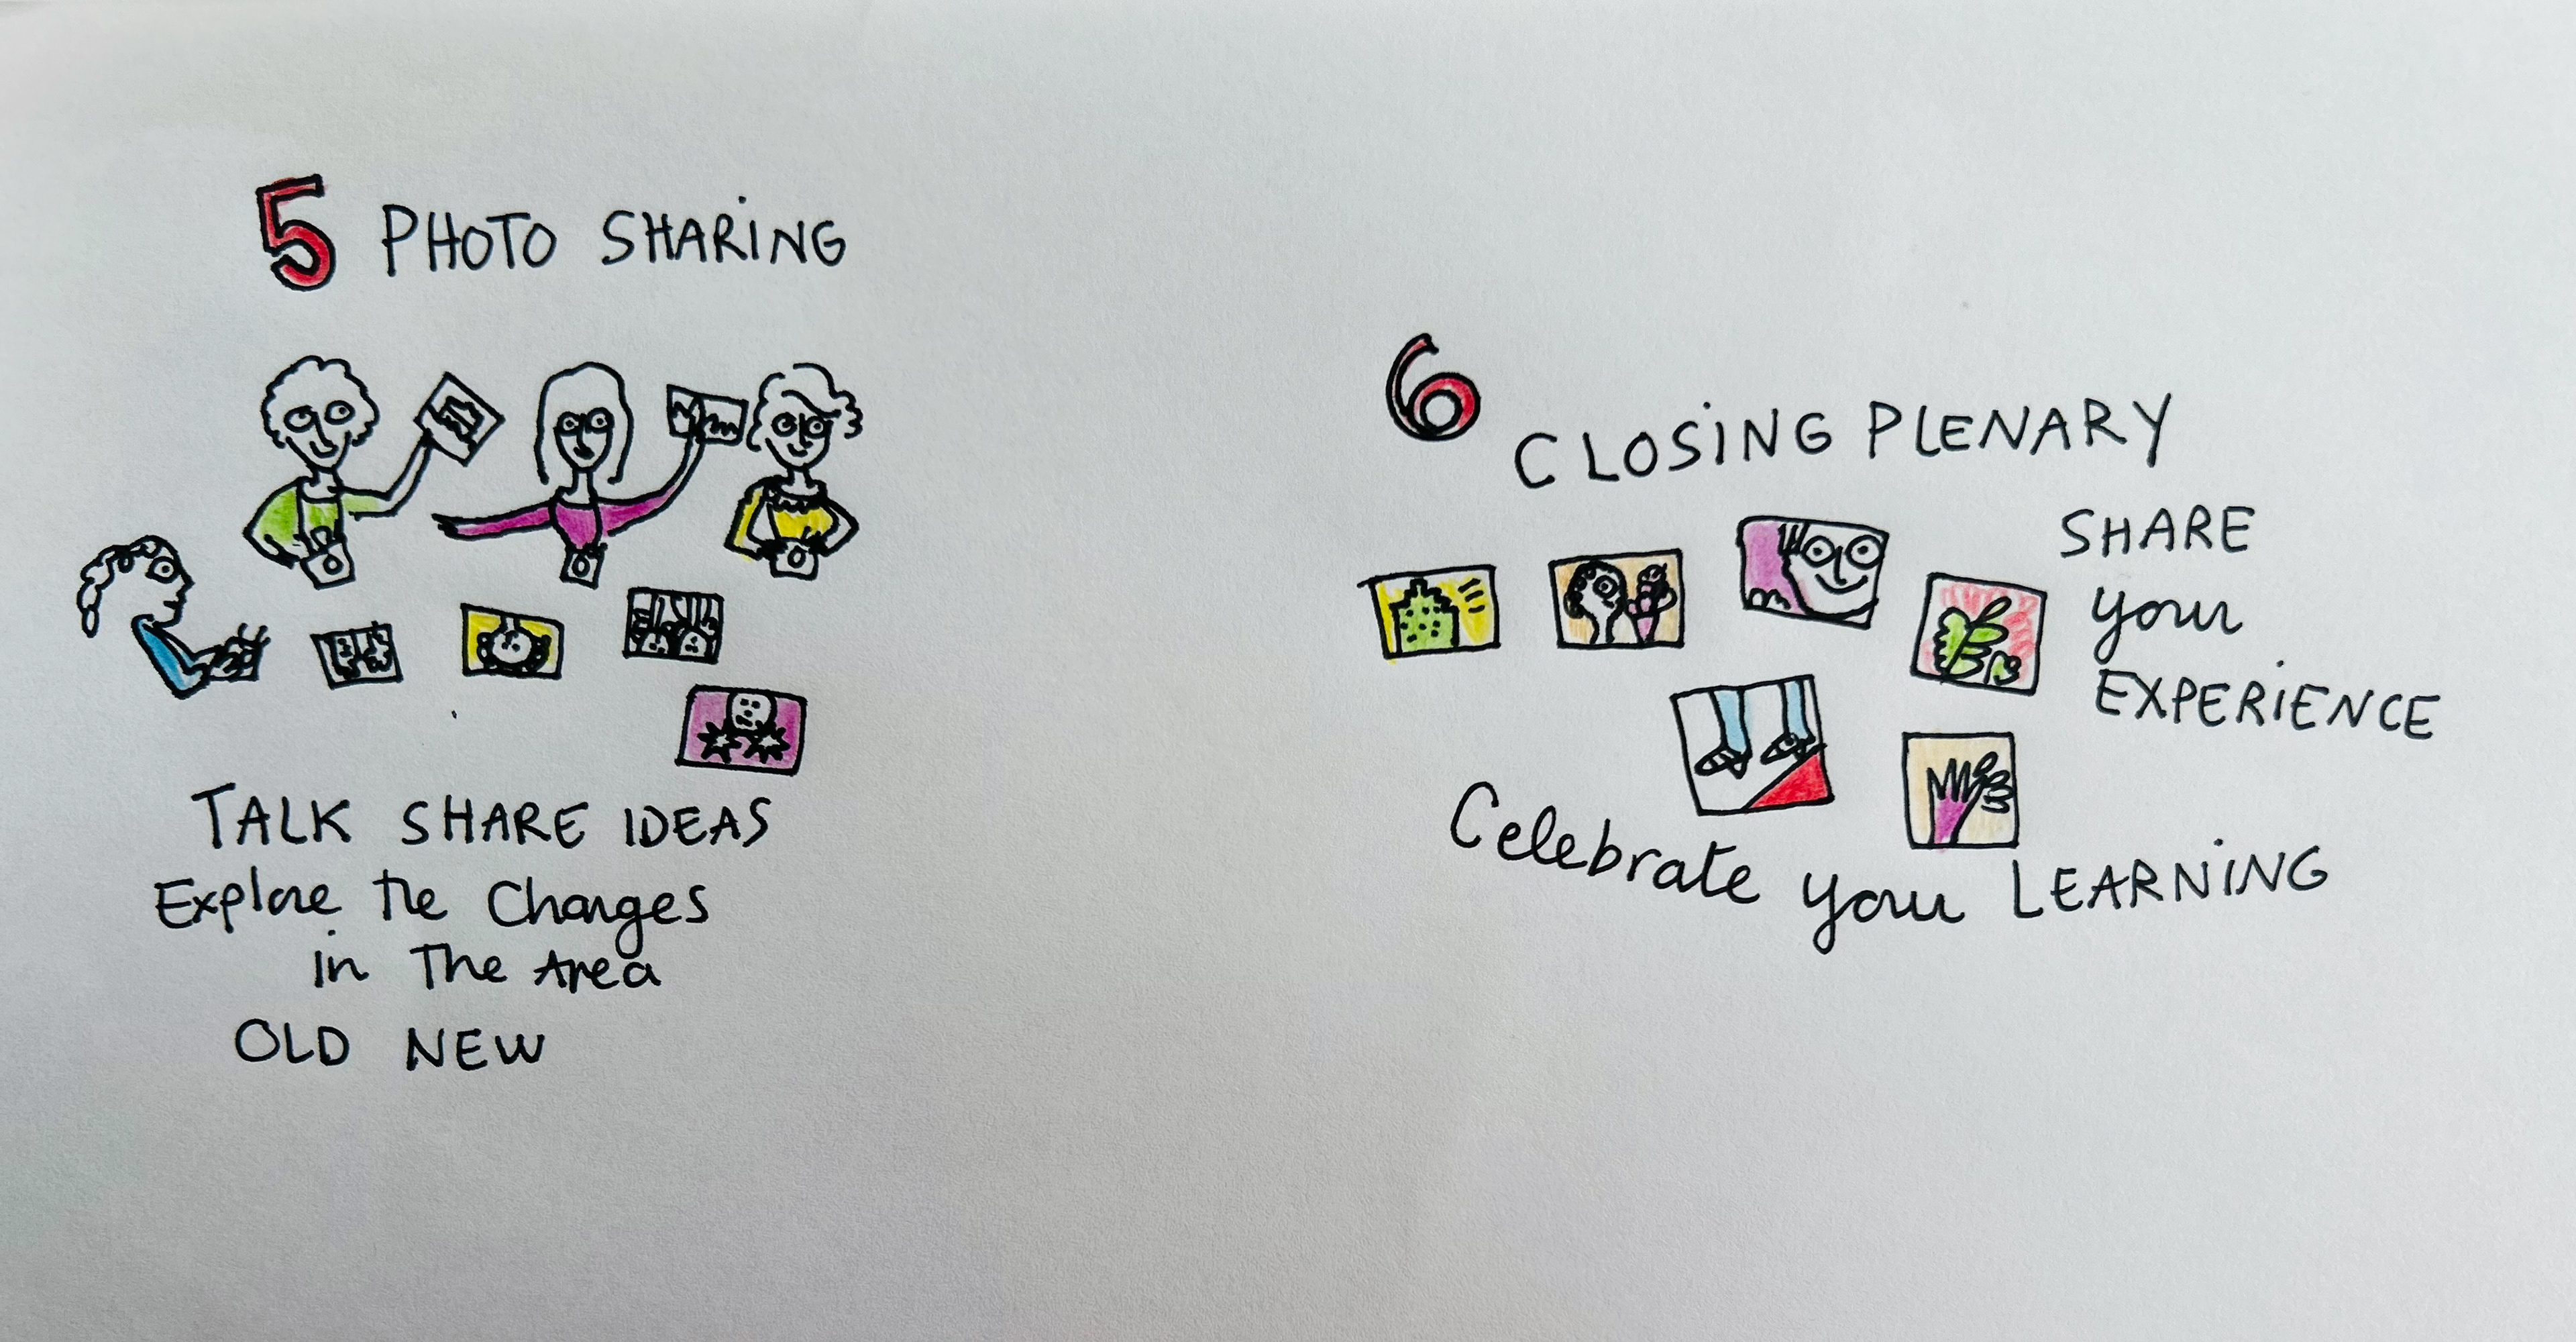 5 PHOTO SHARING
TALK SHARE IDEAS
Explore the Changes
in The Area
OLD NEW
6 CLOSING PLENARY
SHARE
your
EXPERIENCE
Celebrate your LEARNING